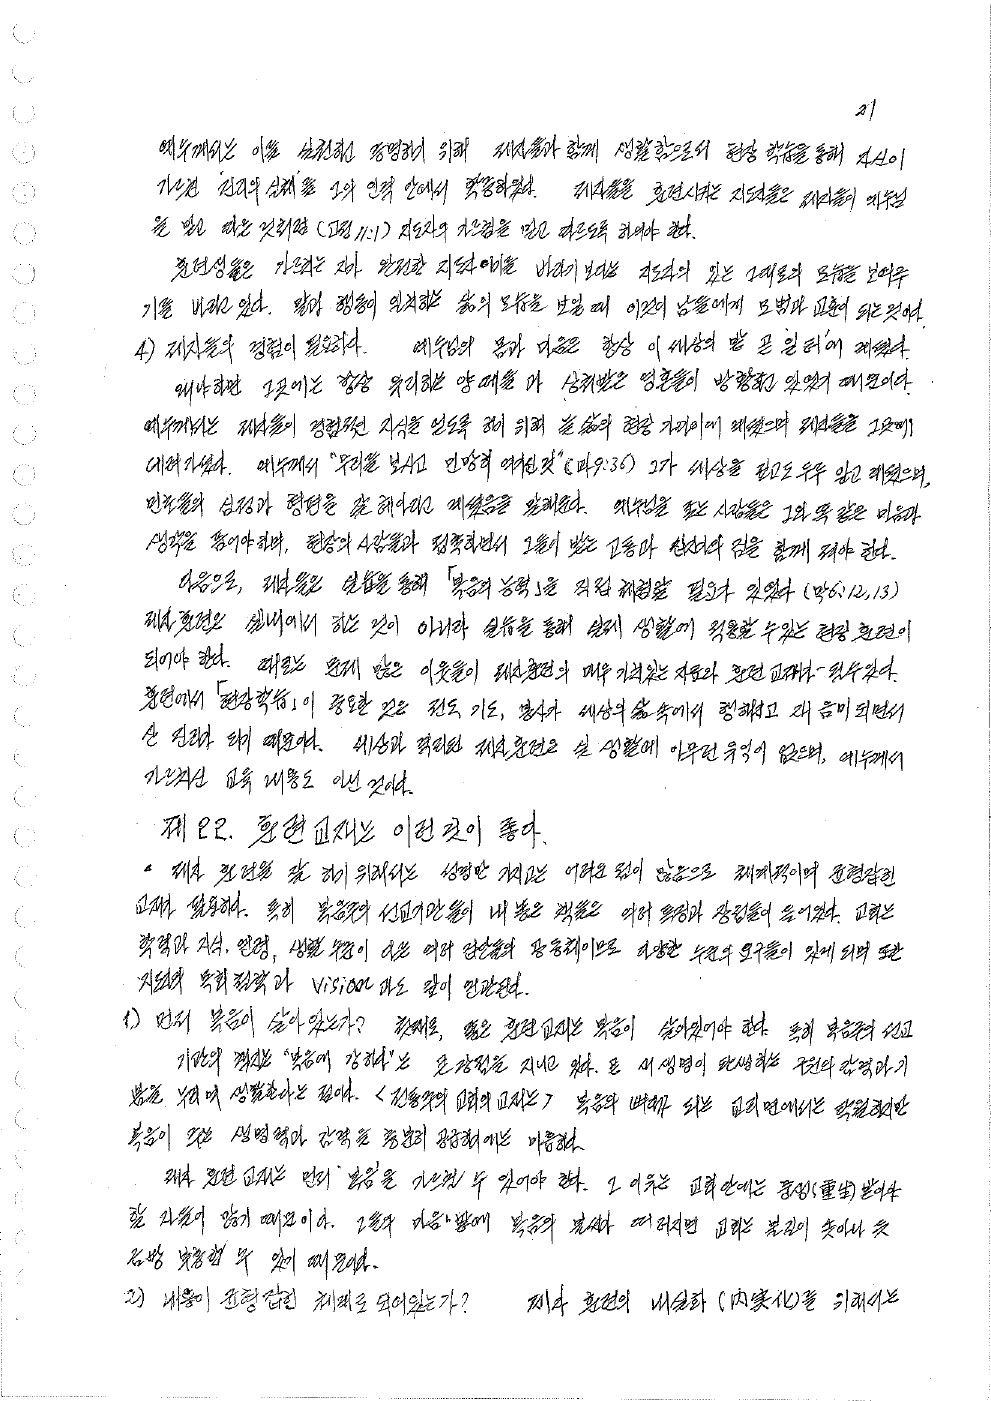 21
예수께서는 이를 실천하고 증명하기 위해 제자들과 함께 생활함으로서 현장 학습을 통해 자신이
가르친 '진리의 실체'를 그의 인격 안에서 확증하였다. 제자들을 훈련시키는 지도자들은 제자들이 예수님
을 믿고 따른 것처럼 (고전 11:1) 지도자의 가르침을 믿고 따르도록 하여야 한다.
훈련생들은 가르치는 자가 완전한 지도자이기를 바라기 보다는 지도자의 있는 그대로의 모습을 보여주
기를 바라고 있다. 말과 행동이 일치하는 삶의 모습을 보일때 이것이 남들에게 모범과 교훈이 되는 것이다.
4) 제자들의 경험이 필요하다. 예수님의 몸과 마음은 항상 이 세상의 밭 곧 '일터'에 계셨다.
왜냐하면 그곳에는 항상 유리하는 양떼들과 상처받은 영혼들이 방황하고 있었기 때문이다.
예수께서는 제자들이 경험적인 지식을 얻도록 하기 위해 늘 삶의 현장 가까이에 계셨으며 제자들을 그곳에
데려가셨다. 예수께서 "무리를 보시고 민망히 여기신 것"(마9:36) 그가 세상을 필고도 두루 알고 계셨으며,
민중들의 심정과 형편을 잘 헤아리고 계셨음을 말해준다. 예수님을 좇는 사람들은 그와 똑같은 마음과
생각을 품어야하며, 현장의 사람들과 접촉하면서 그들이 받는 고통과 인간의 짐을 함께 져야 한다.
다음으로, 제자들은 실습을 통해 「복음의 능력」을 직접 체험할 필요가 있었다 (막6:12,13)
제자훈련은 실내에서 하는 것이 아니라 실습을 통해 실제 생활에 적용할 수 있는 현장 훈련이
되어야 한다. 때로는 문제 많은 이웃들이 제자훈련의 매우 가치있는 자료와 훈련 교재가 될수있다.
훈련에서 「현장학습」이 중요한 것은 전도 기도, 봉사가 세상의 삶 속에서 행해지고 재 음미되면서
산 진리가 되기 때문이다. 세상과 격리된 제자훈련은 실 생활에 아무런 유익이 없으며, 예수께서
가르치신 교육 내용도 아닌 것이다.
제 22. 훈련 교재는 이런 것이 좋다.
• 제자 훈련을 잘 하기 위해서는 성경만 가지고는 어려운 점이 많음으로 체계적이며 균형잡힌
교재가 필요하다. 특히 복음주의 선교기관들이 내 놓은 책들은 여러 특징과 장점들이 들어있다. 교회는
학력과 지식, 연령, 생활 수준이 다른 여러 집단들의 공동체이므로 다양한 수준의 요구들이 있게 되며 또한
지도자의 목회 철학과 Vision 과도 깊이 연관된다.
1) 먼저 복음이 살아 있는가? 첫째로, 좋은 훈련교재는 복음이 살아있어야 한다. 특히 복음주의 선교
기관의 책자는 "복음에 강하다"는 큰 장점을 지니고 있다. 또 새 생명이 탄생하는 구원의 감격과 기
쁨을 누리며 생활한다는 점이다. <전통주의 교회의 교재는> 복음의 뼈대가 되는 교리면에서는 탁월하지만
복음이 주는 생명력과 감격을 충분히 공급하기에는 미흡하다.
제자 훈련 교재는 먼저 '복음'을 가르칠 수 있어야 한다. 그 이유는 교회 안에는 중생(重生) 받아야
할 자들이 많기 때문이다. 그들의 '마음밭'에 복음의 불씨가 떨어지면 교회는 불길이 솟아나 듯
금방 부흥할 수 있기 때문이다.
2) 내용이 균형잡힌 체계로 되어있는가? 제자 훈련의 내실화 (內実化)를 위해서는